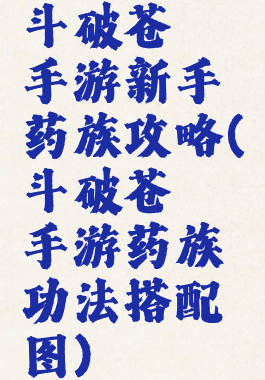 斗破苍
手游新手
药族攻略(
斗破苍
手游药族
功法搭配
图)